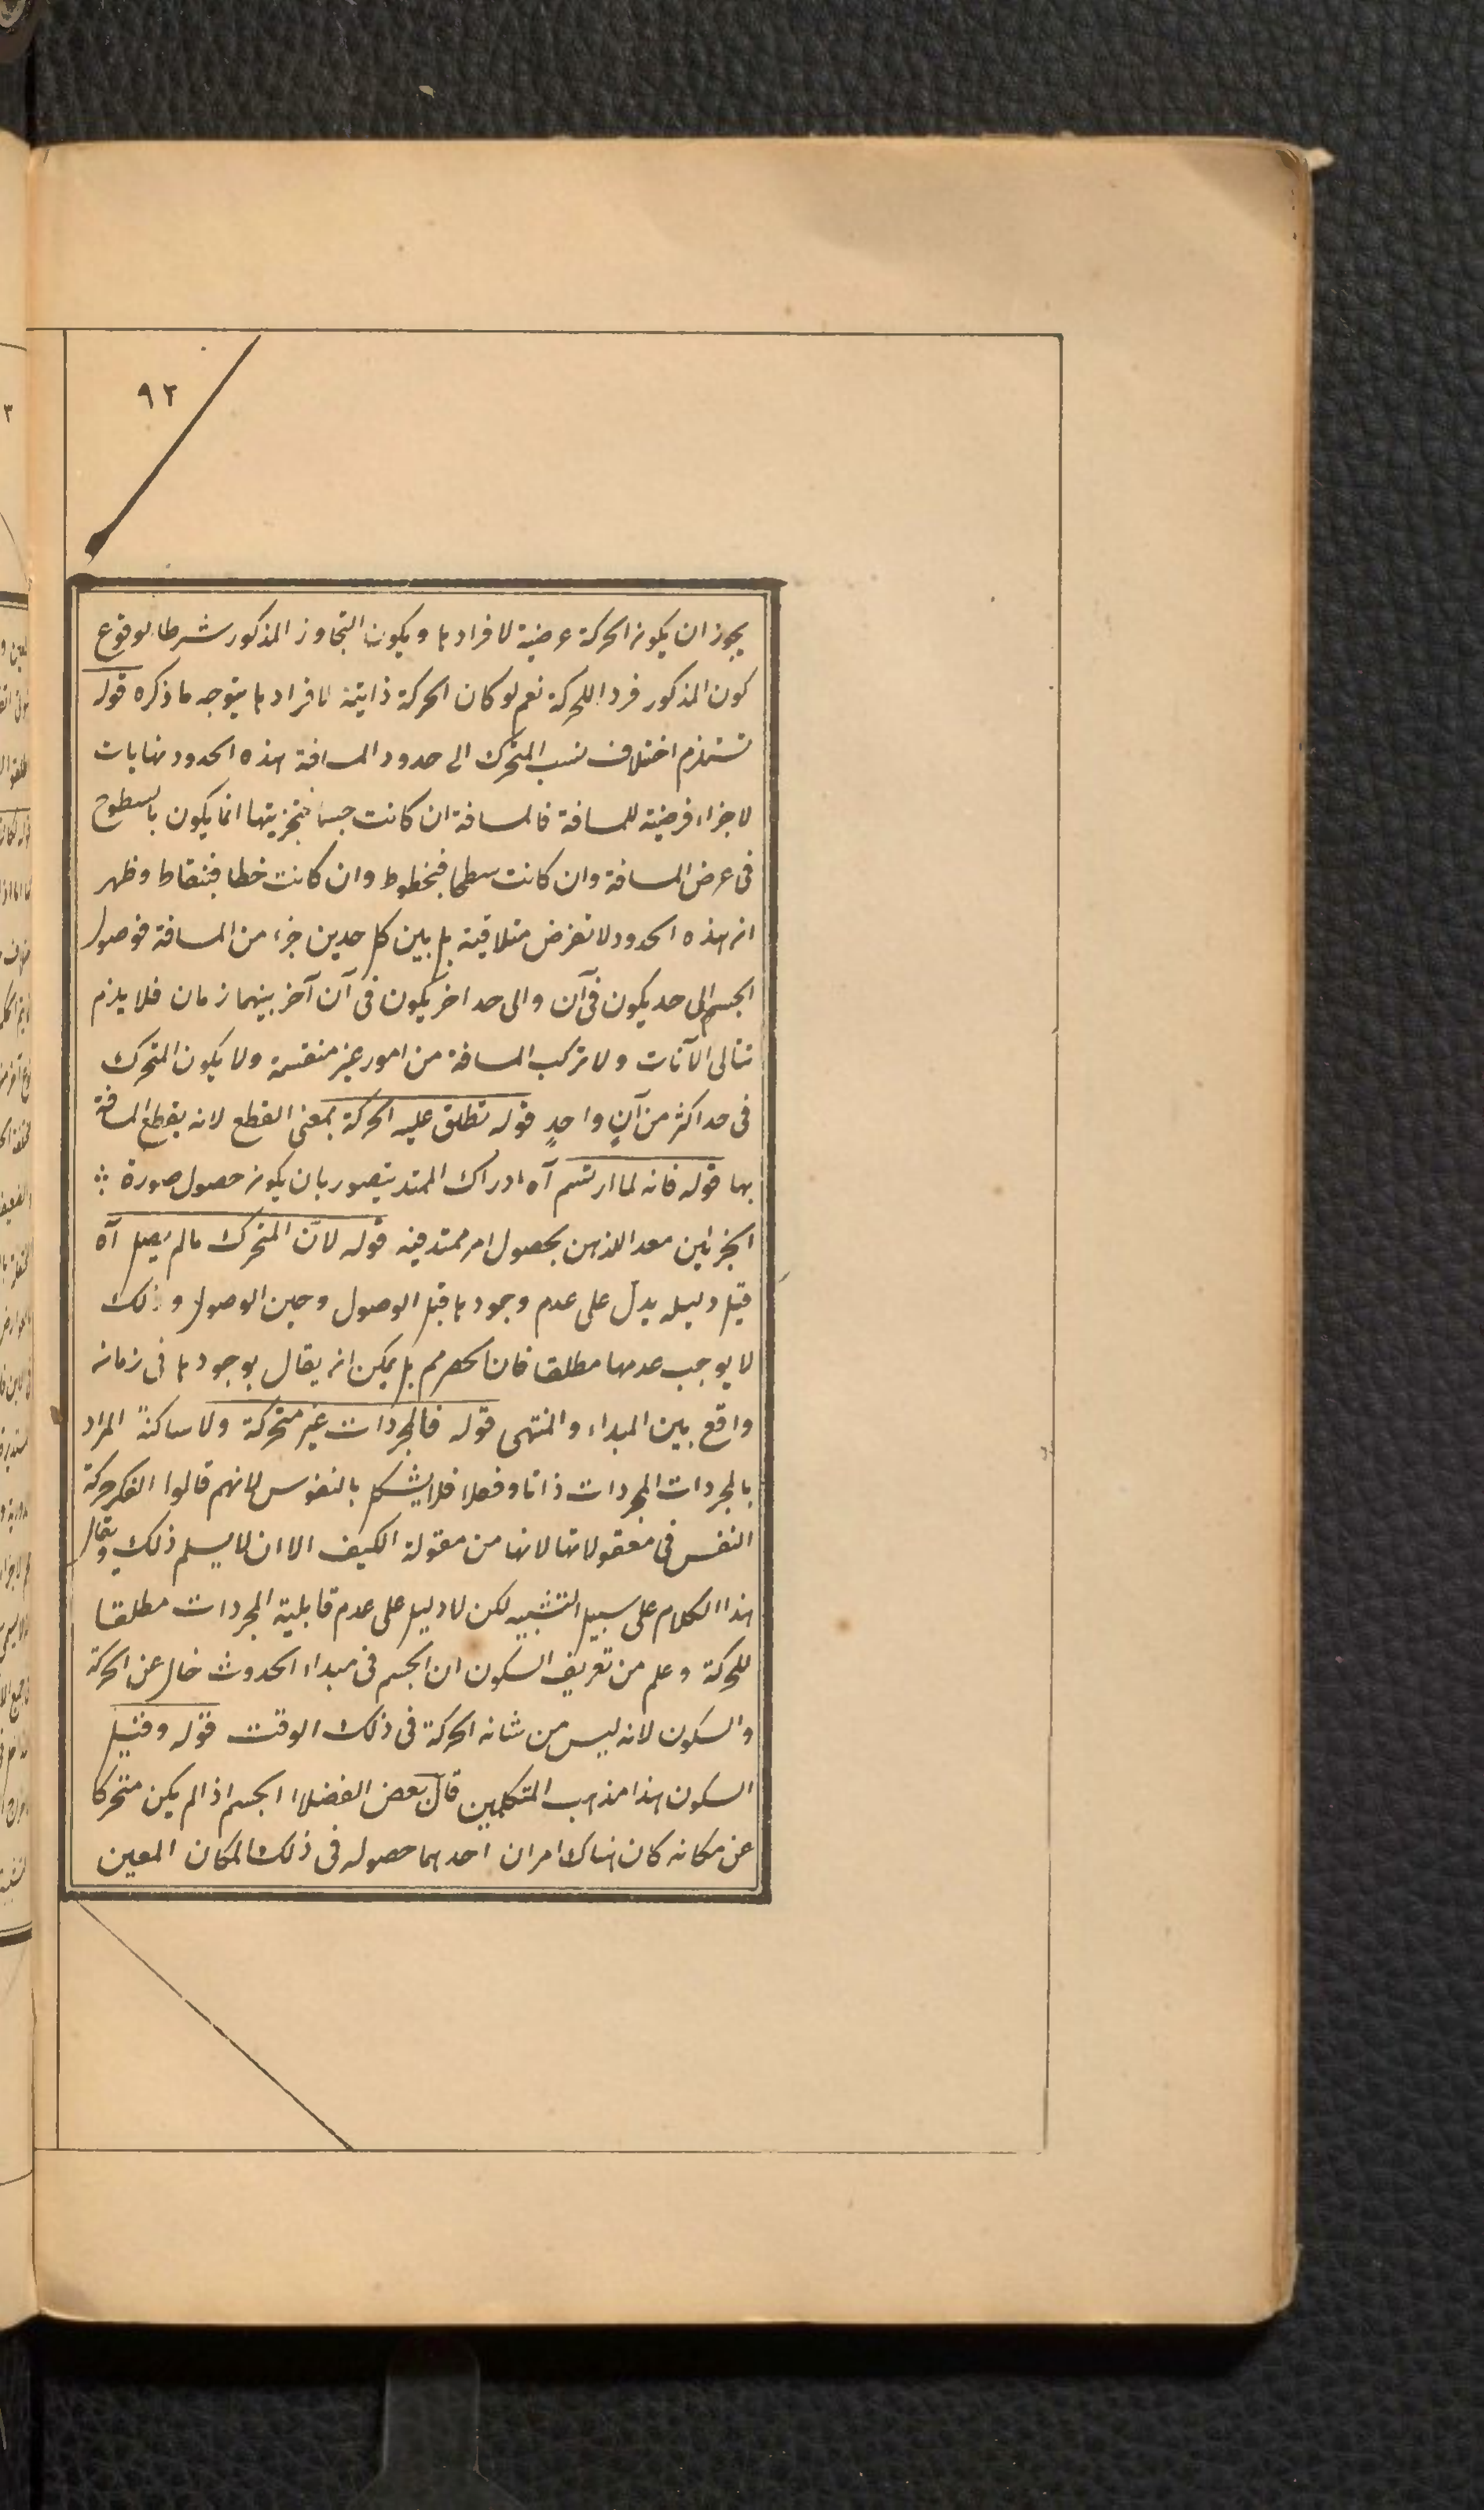 ٩٢
يجوز ان يكون الحركة عرضية لافرادها ويكون التجاوز المذكور شرطا لوقوع
كون المذكور فردا للحركة نعم لو كان الحركة ذاتية لافرادها يتوجه ما ذكره قوله
تستلزم اختلاف نسب المتحرك الى حدود المسافة هذه الحدود نهايات
لاجزاء فرضية للمسافة فالمسافة ان كانت جسما فتجزيتها انما يكون بالسطوح
فى عرض المسافة وان كانت سطحا فبخطوط وان كانت خطا فبنقاط وظهر
ان هذه الحدود لا تفرض متلاقية بل بين كل حدين جزء من المسافة فوصول
الجسم الى حد يكون فى آن والى حد اخر يكون فى آن آخر بينهما زمان فلا يلزم
تتالى الآنات ولا تركب المسافة من امور غير منقسمة ولا يكون المتحرك
فى حد اكثر من آنٍ واحدٍ قوله تطلق عليه الحركة بمعنى القطع لانه يقطع المسافة
بها قوله فانه لما ارتسم آه ادراك الممتد يتصور بان يكون حصول صورة
الجزئين معد الذهن بحصول امر ممتد فيه قوله لانّ المتحرك ما لم يصل آه
قيل دليله يدل على عدم وجودها قبل الوصول وحين الوصول وذلك
لا يوجب عدمها مطلقا فان الحصر مم بل يمكن ان يقال بوجودها فى زمان
واقع بين المبداء والمنتهى قوله فالمجردات غير متحركة ولا ساكنةً المراد
بالمجردات المجردات ذاتا وفعلا فلا يشكل بالنفوس لانهم قالوا الفكر حركة
النفس فى معقولاتها لانها من مقولة الكيف الا ان لا يسلم ذلك ويقال
هذا الكلام على سبيل التشبيه لكن لا دليل على عدم قابلية المجردات مطلقا
للحركة وعلم من تعريف السكون ان الجسم فى مبداء الحدوث خال عن الحركة
والسكون لانه ليس من شانه الحركة فى ذلك الوقت قوله وقيل
السكون هذا مذهب المتكلمين قال بعض الفضلاء الجسم اذا لم يكن متحركا
عن مكانه كان هناك امران احدهما حصوله فى ذلك المكان المعين